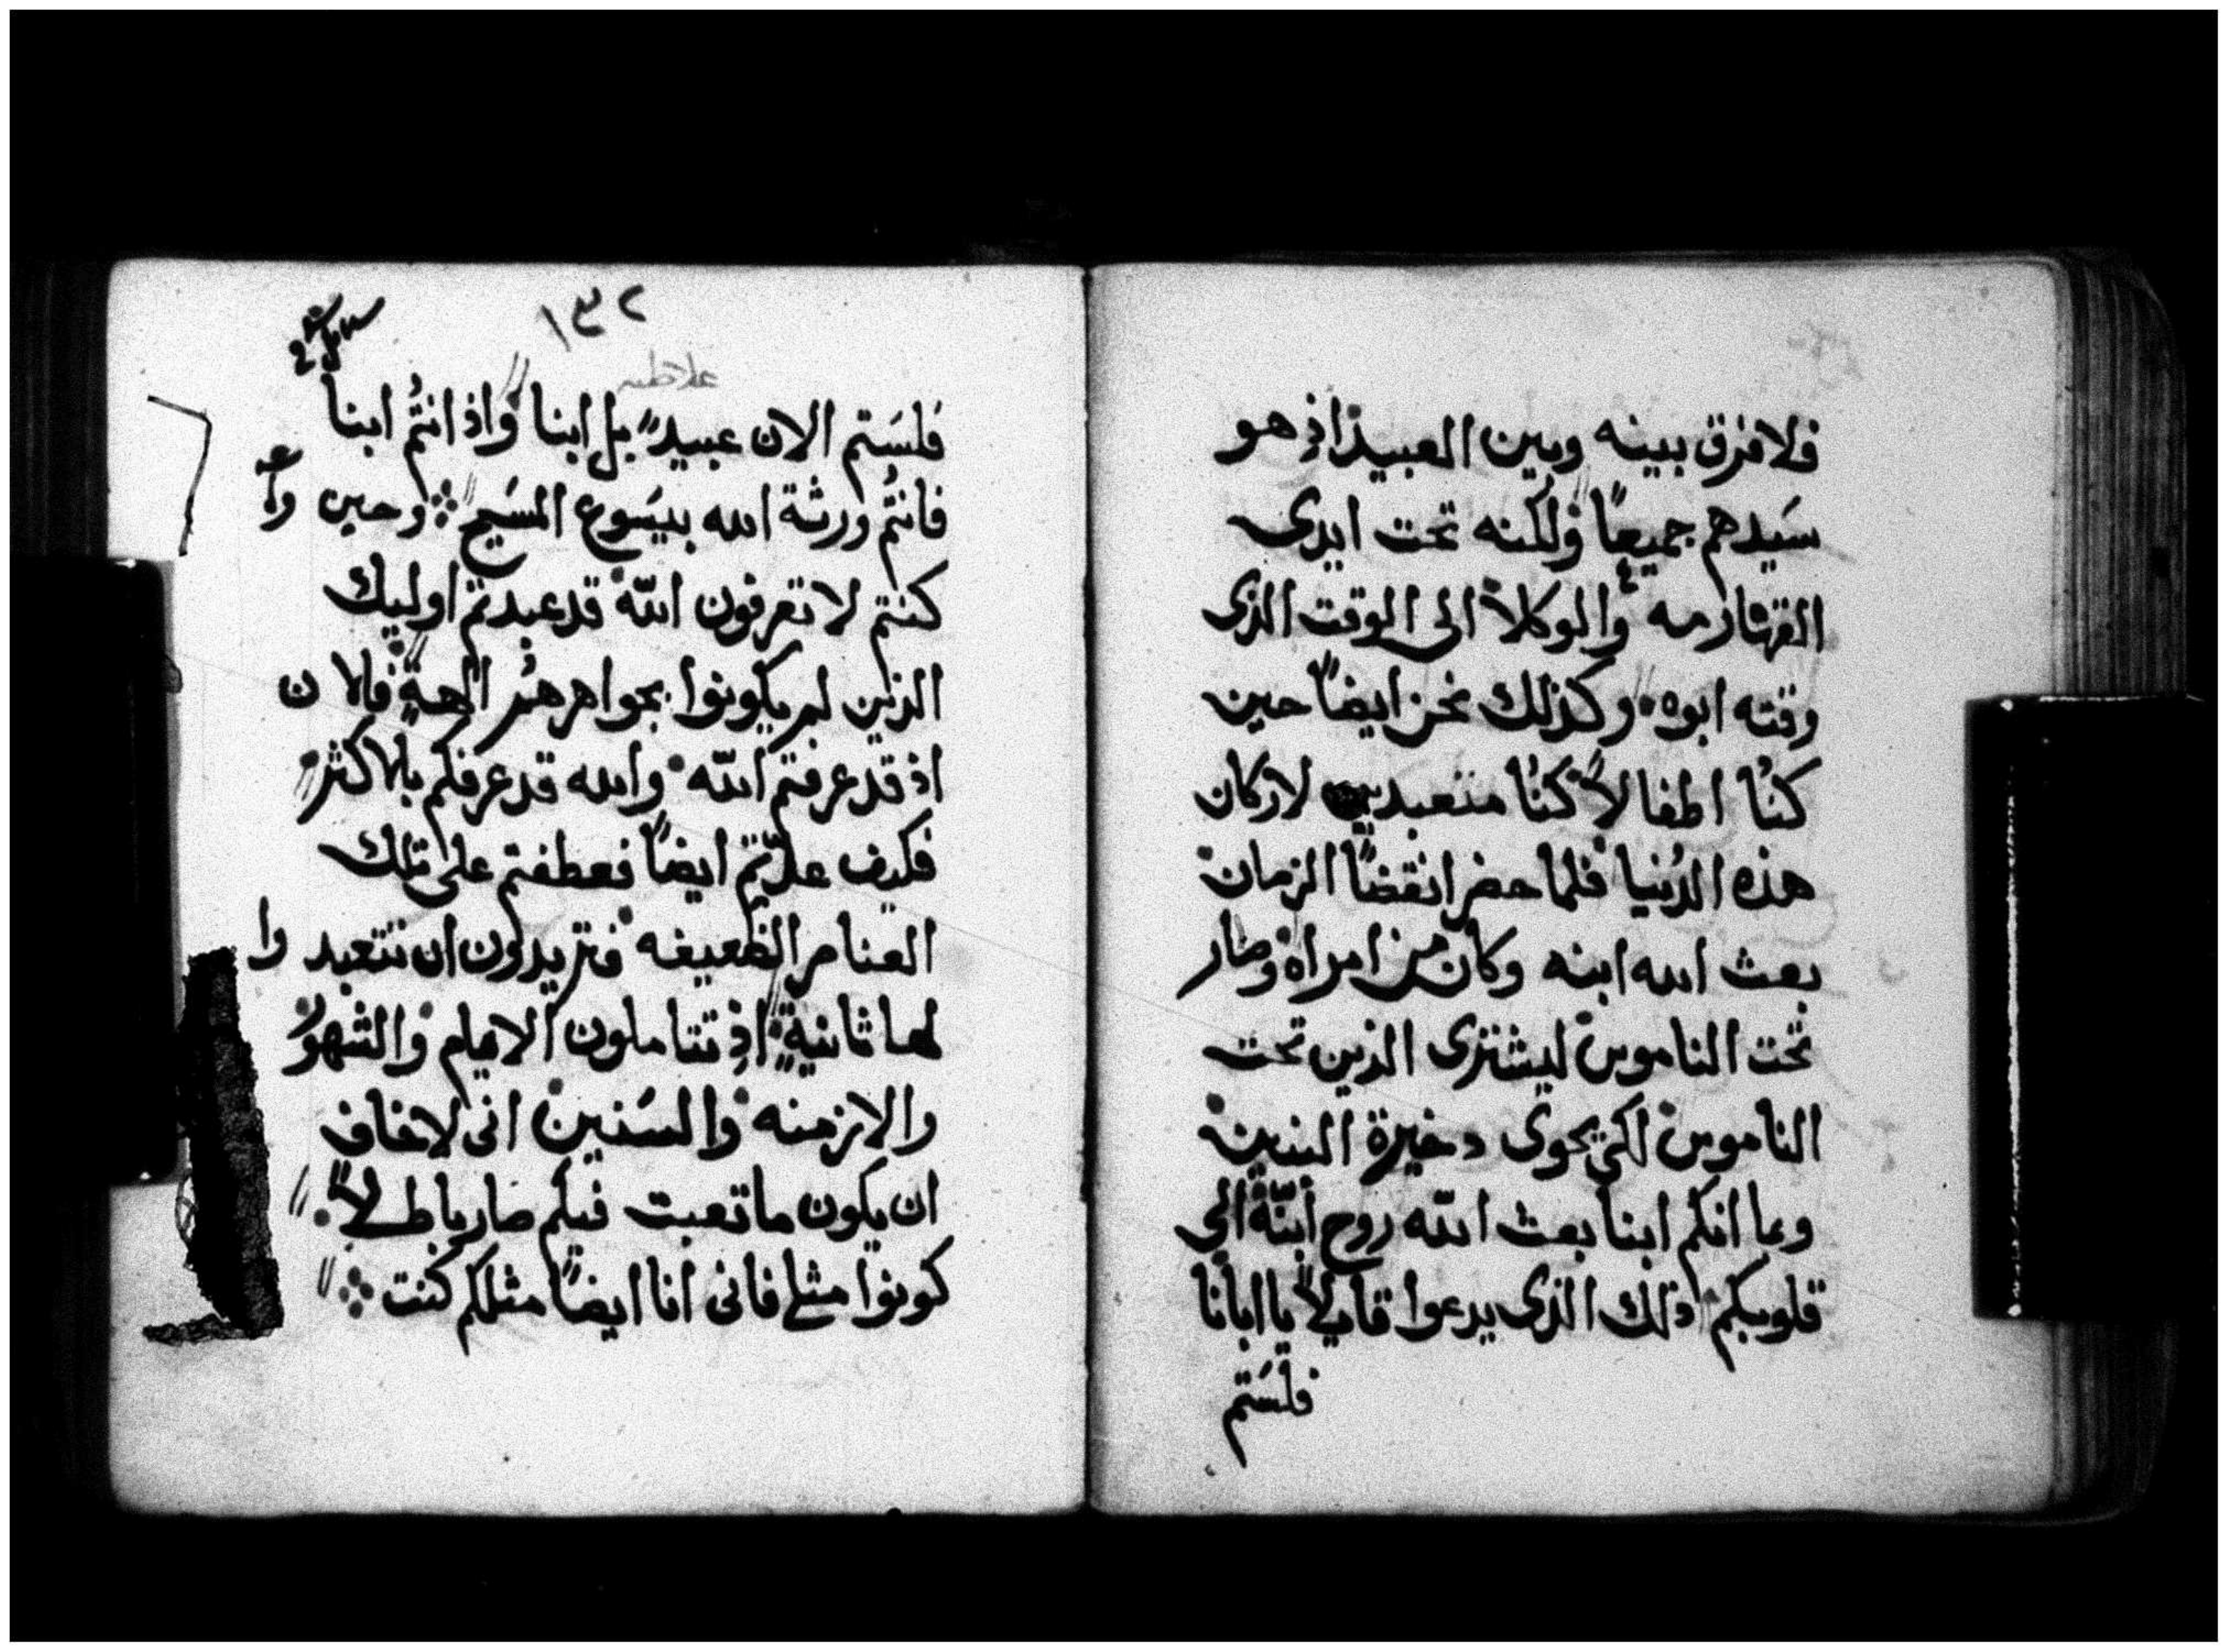 فلا فرق بينه وبين العبيد اذ هو
سَيدهم جميعاً ولكنه تحت ايدى
القهارمه والوكلا الى الوقت الذى
وقته ابوه وكذلك نحن ايضاً حين
كنُا اطفالاً كنُا متعبدين لاركان
هذه الدُنيا فلما حضر انقضا الزمان
بعث الله ابنه وكان من امراه وصار
تحت الناموس ليشترى الذين تحت
الناموس لكي يحوى دخيرة البنين
وبما انكم ابنا بعث الله روح ابنه الى
قلوبكم ذلك الذى يدعوا قايلاً يا ابانا
فلسَتم
١٣٢
غلاطيه
فلسَتم الان عبيد بل ابنا واذ انتُم ابنا
فانتُم ورثة الله بيسَوع المسَيح وحين
كنتم لا تعرفون الله قد عبدتم اوليك
الذين لم يكونوا بجواهرهم الهة فالان
اذ قد عرفتم الله والله قد عرفكم بالاكثر
فكيف عدتم ايضاً فعطفتم على تلك
العناصر الضعيفه فتريدون ان تتعبدوا
لها ثانية اذ تتاملون الايام والشهور
والازمنه والسَنين انى لاخاف
ان يكون ما تعبت فيكم صار باطلاً
كونوا مثلي فانى انا ايضاً مثلكم كنت